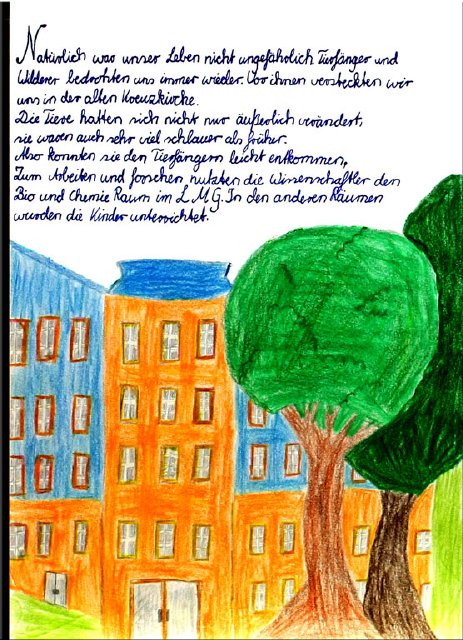 Natürlich war unser Leben nicht ungefährlich Tierfänger und
Wilderer bedrohten uns immer wieder. Vor ihnen versteckten wir
uns in der alten Kreuzkirche.
Die Tiere hatten sich nicht nur äußerlich verändert,
sie waren auch sehr viel schlauer als früher.
Also konnten sie den Tierfängern leicht entkommen.
Zum Arbeiten und forschen nutzten die Wissenschaftler den
Bio und Chemie Raum im L.M.G. In den anderen Räumen
wurden die Kinder unterrichtet.